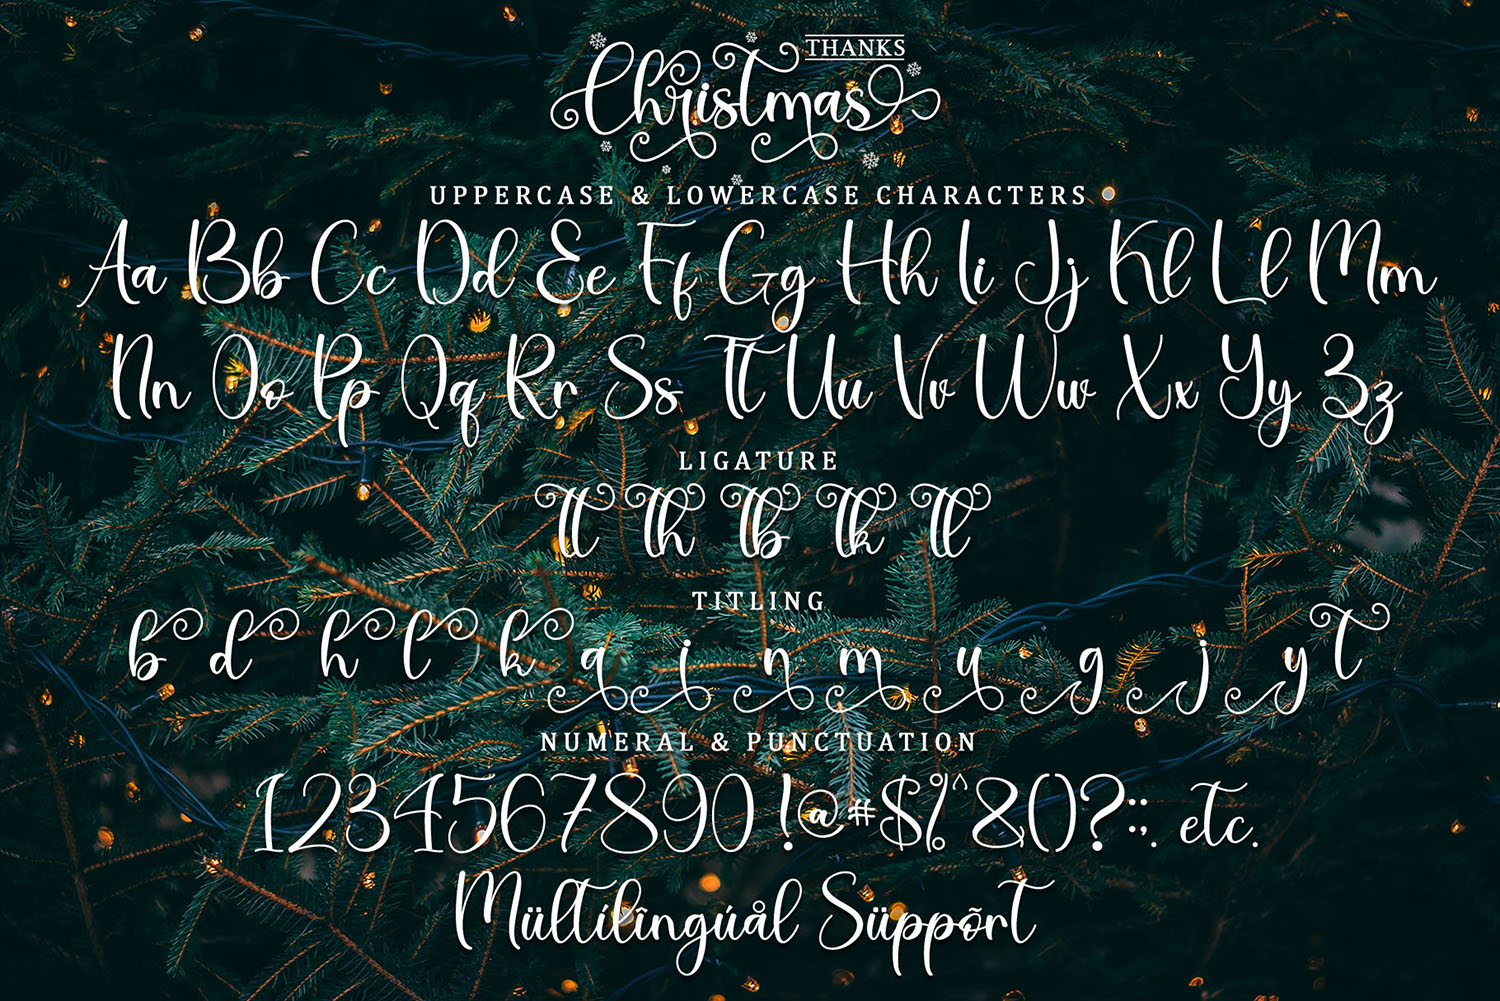 THANKS
Christmas
UPPERCASE & LOWERCASE CHARACTERS
Aa Bb Cc Dd Ee Ff Gg Hh Ii Jj Kk Ll Mm
Nn Oo Pp Qq Rr Ss Tt Uu Vv Ww Xx Yy Zz
LIGATURE
tt th tb tk tl
TITLING
b d h l k a i n m u g j y t
NUMERAL & PUNCTUATION
1234567890 !@#$%^&()?:;. etc.
Mültílîngúål Süppõrt